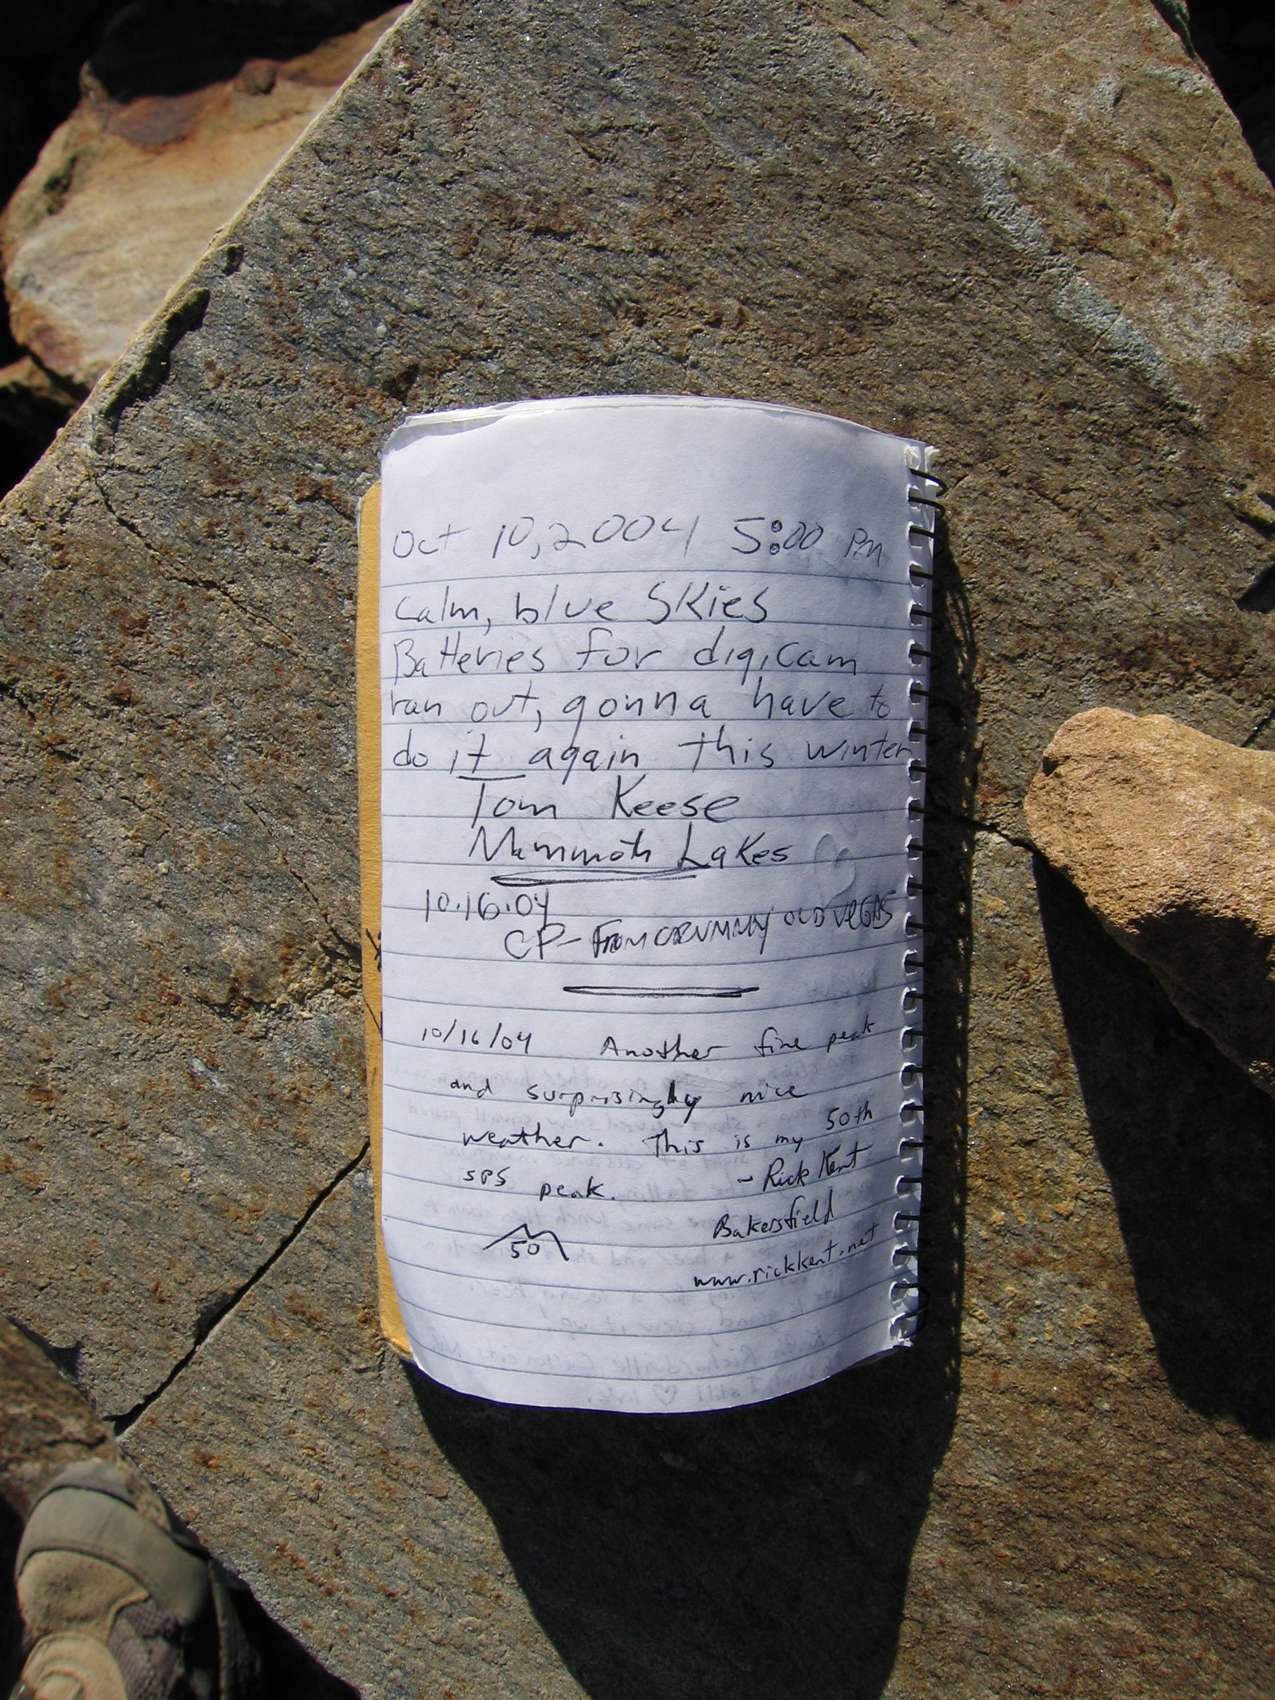 Oct 10, 2004 5:00 PM
Calm, blue skies
Batteries for digicam
ran out, gonna have to
do it again this winter
Tom Keese
Mammoth Lakes
10.16.04
CP - FROM CRUMMY OLD VEGAS
10/16/04 Another fine peak
and surprisingly nice
weather. This is my 50th
SPS peak. - Rick Kent
Bakersfield
50
www.rickkent.net